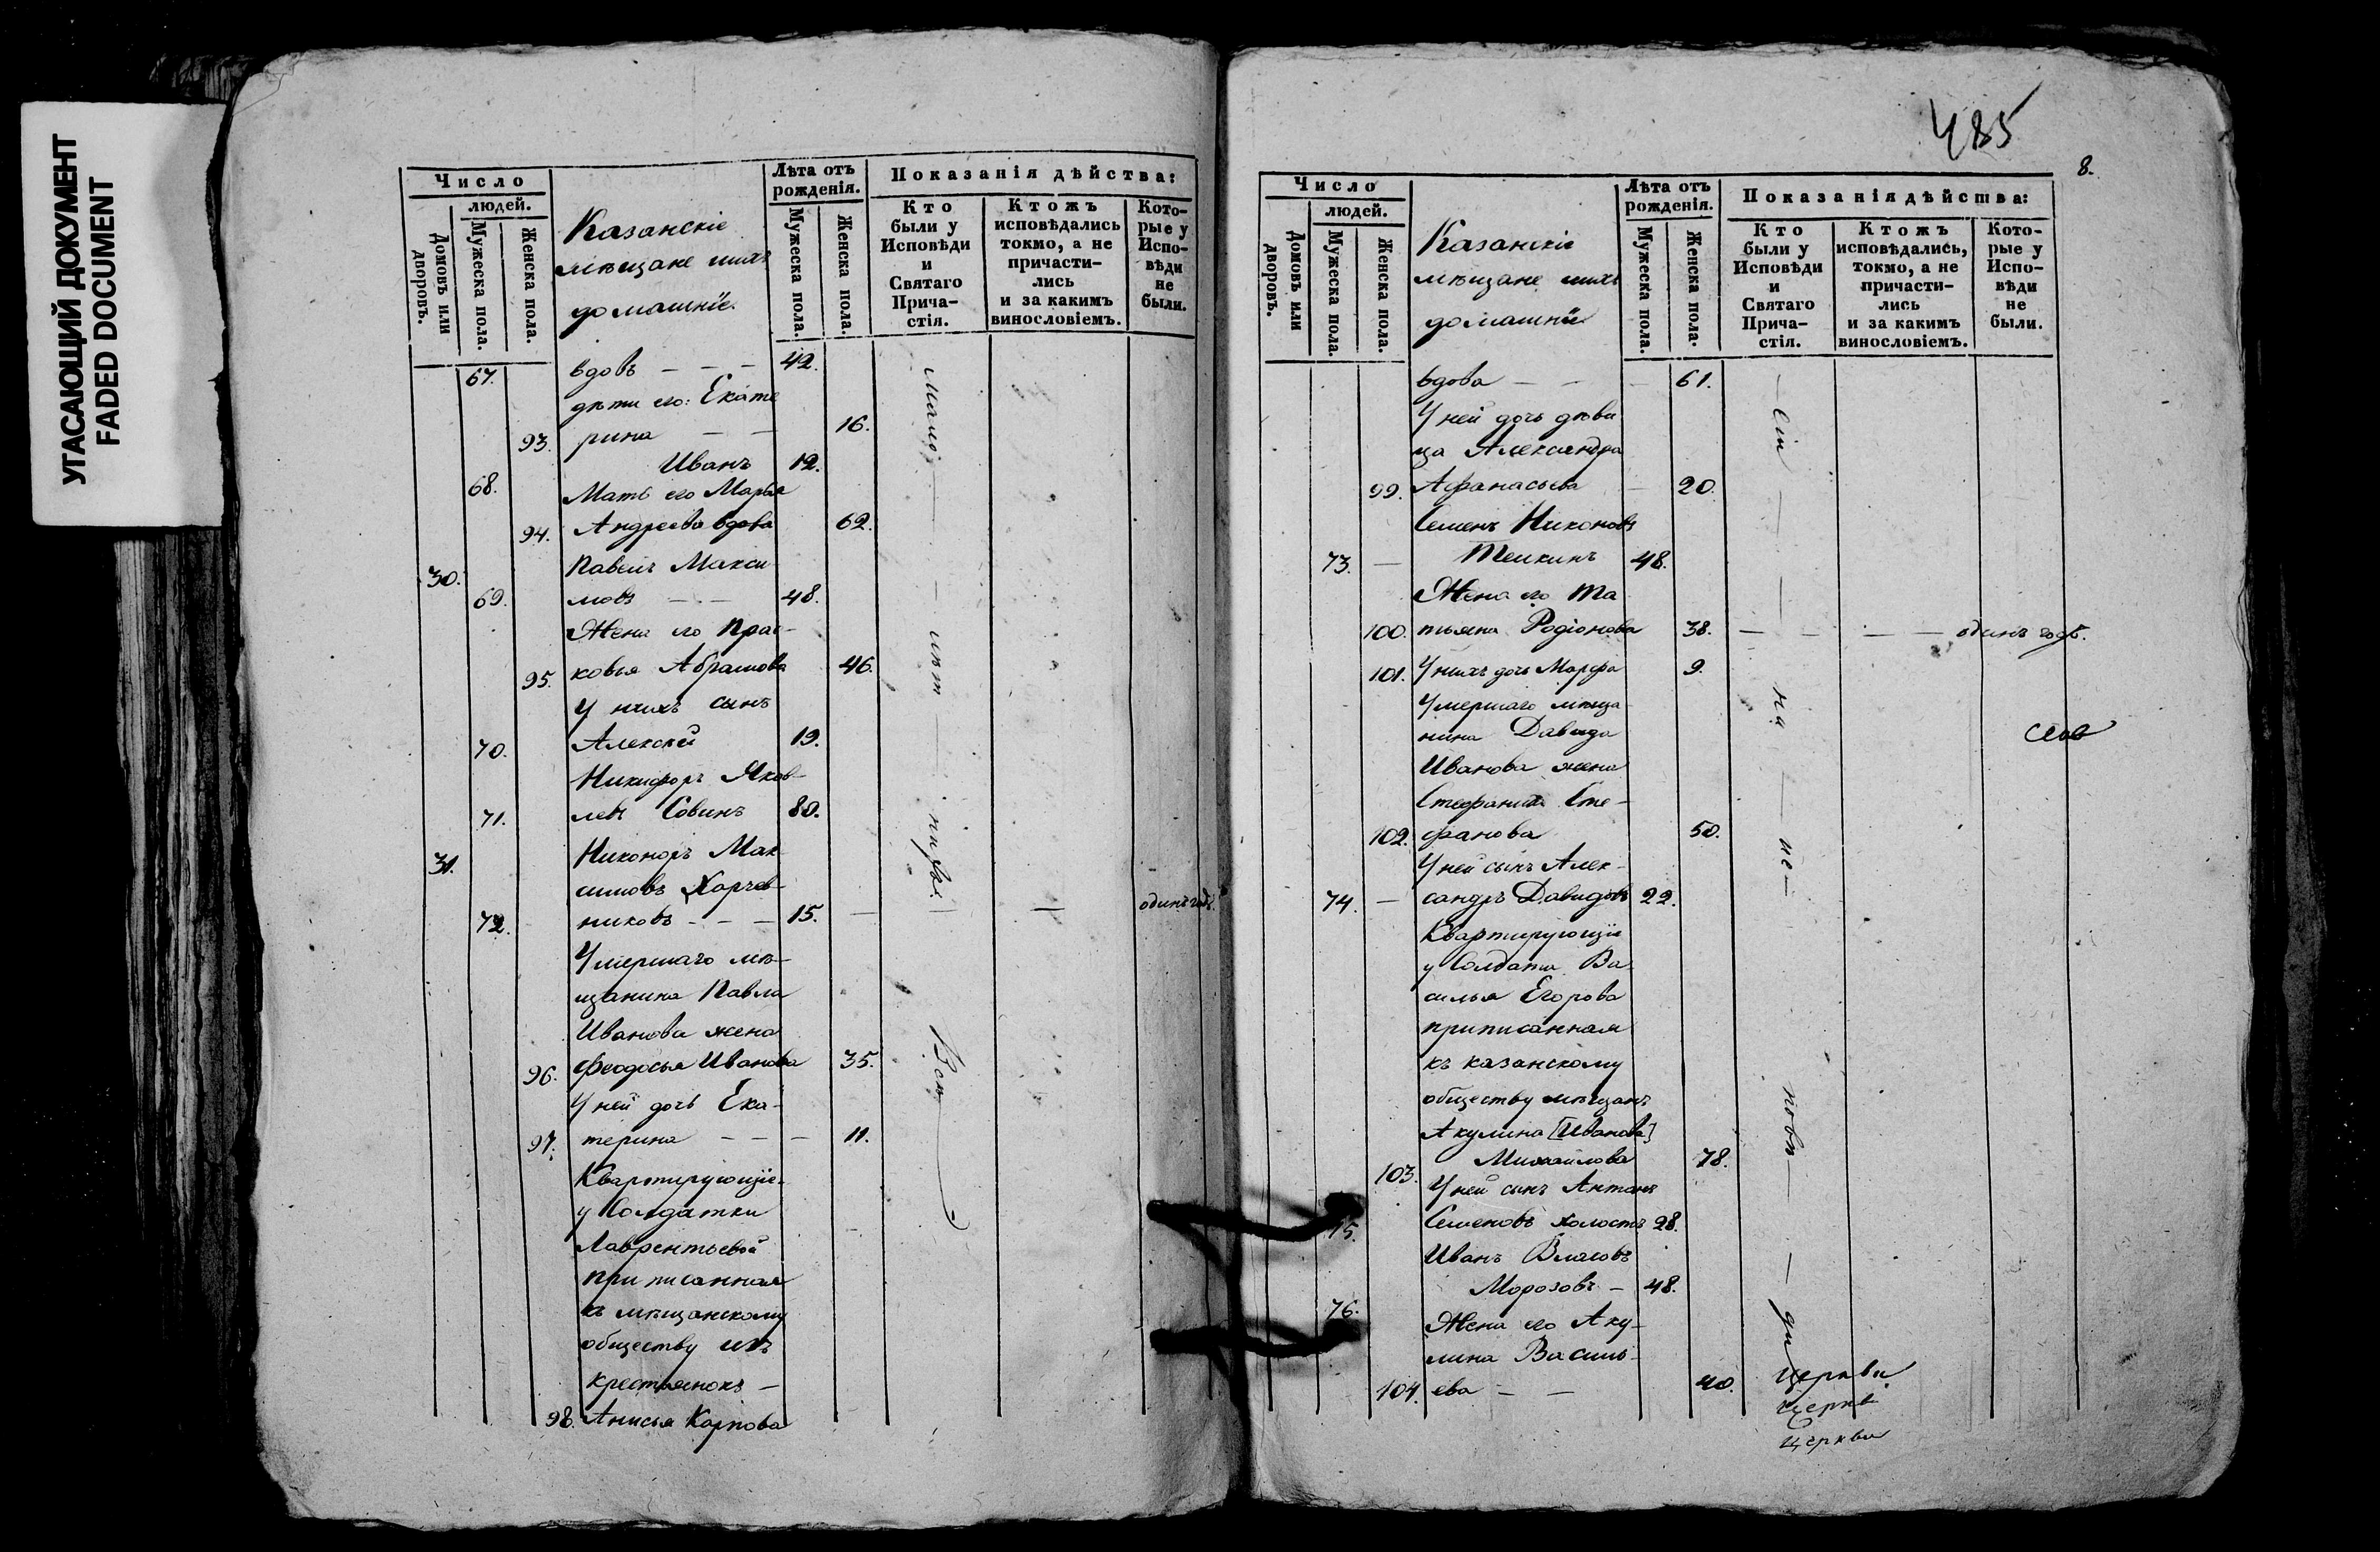 УГАСАЮЩИЙ ДОКУМЕНТ
FADED DOCUMENT
Число
людей.
Домовъ или дворовъ.
Мужеска пола.
Женска пола.
Казанскіе
мѣщане ихъ
домашніе.
Лѣта отъ рожденія.
Мужеска пола.
Женска пола.
Показанія дѣйства:
Кто были у Исповѣди и Святаго Прича-стія.
Ктожъ исповѣдались токмо, а не причасти-лись и за какимъ винословіемъ.
Кото-рые у Испо-вѣди не были.
67. вдовъ — — — 42.
дѣти его: Екате
93. рина — — 16.
68. Иванъ 12.
Мать его Марья
94. Андреева вдова 62.
30. Павелъ Макси
69. мовъ — — 48.
Жена его Прас-
95. ковья Абрамова 46.
У нихъ сынъ
70. Алексѣй 19.
Никифоръ Яков-
71. левъ Совинъ 80.
31. Никоноръ Мак-
симовъ Харчев-
72. никовъ — — — 15. — — одинъ годъ.
Умершаго мѣ-
щанина Павла
Иванова жена
96. Феодосья Иванова 35.
У ней дочь Ека-
97. терина — — — 11.
Квартирующіе
у Солдатки
Лаврентьевой
приписанная
къ мѣщанскому
обществу изъ
крестьянокъ —
98. Анисья Карпова
Всѣ
485
8.
Число
людей.
Домовъ или дворовъ.
Мужеска пола.
Женска пола.
Казанскіе
мѣщане ихъ
домашніе
Лѣта отъ рожденія.
Мужеска пола.
Женска пола.
Показанія дѣйства:
Кто были у Исповѣди и Святаго Прича-стія.
Ктожъ исповѣдались, токмо, а не причасти-лись и за какимъ винословіемъ.
Кото-рые у Испо-вѣди не были.
вдова — — — 61.
У ней дочь дѣви
ца Александра
99. Афанасьева — 20.
Семенъ Никоновъ
73. — Тешкинъ 48.
Жена его Та
100. тьяна Родіонова 38. — — — — одинъ годъ.
101. У нихъ дочь Марфа 9.
Умершаго мѣща
нина Давыда
Иванова жена
Стефанида Сте-
102. фанова 50.
У ней сынъ Алек-
74. — сандръ Давидовъ 22.
Квартирующіе
у Солдата Ва-
силья Егорова
приписанная
къ казанскому
обществу мѣщанъ
Акулина [Иванова]
103. Михаилова 78.
У ней сынъ Антонъ
75. Семеновъ холостъ 28.
Иванъ Власовъ
76. Морозовъ — 48.
Жена его Аку-
лина Василь-
104. ева — — 40.
на
не
повѣ
ди
церкви
церкви
церкви